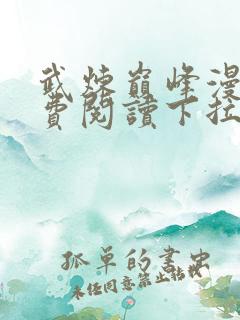 武炼巅峰漫
費閱讀下拉
孤单的書虫
未经同意禁止转载